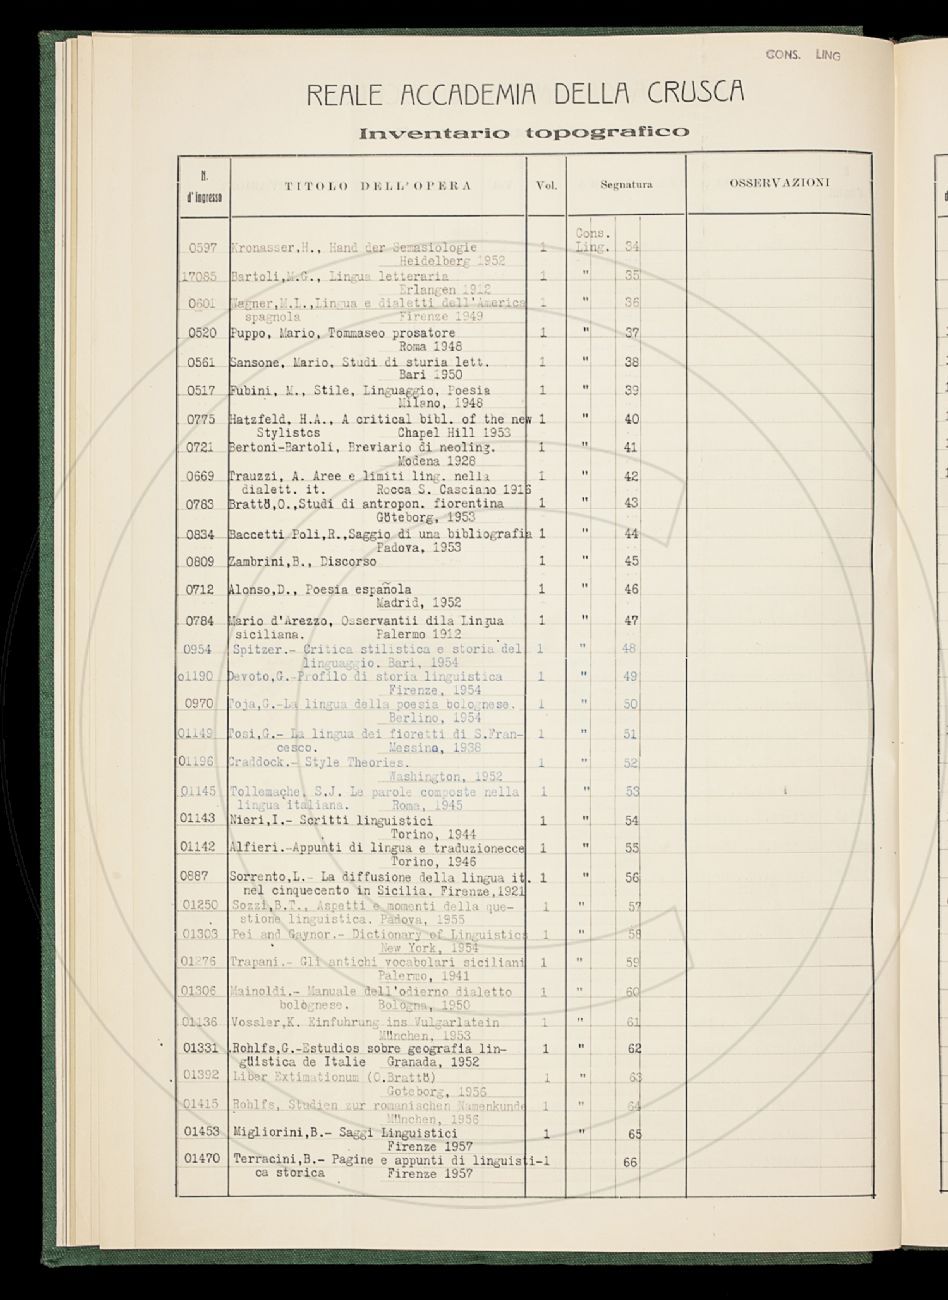 CONS. LING
REALE ACCADEMIA DELLA CRUSCA
Inventario topografico
N. d'ingresso TITOLO DELL'OPERA Vol. Segnatura OSSERVAZIONI
Cons.
0597 Kronasser,H., Hand der Semasiologie 1 Ling. 34
Heidelberg 1952
17085 Bartoli,M.G., Lingua letteraria 1 " 35
Erlangen 1912
0601 Wagner,M.L.,Lingua e dialetti dell'America 1 " 36
spagnola Firenze 1949
0520 Puppo, Mario, Tommaseo prosatore 1 " 37
Roma 1948
0561 Sansone, Mario, Studi di sturia lett. 1 " 38
Bari 1950
0517 Fubini, M., Stile, Linguaggio, Poesia 1 " 39
Milano, 1948
0775 Hatzfeld, H.A., A critical bibl. of the new 1 " 40
Stylistcs Chapel Hill 1953
0721 Bertoni-Bartoli, Breviario di neoling. 1 " 41
Modena 1928
0669 Trauzzi, A. Aree e limiti ling. nella 1 " 42
dialett. it. Rocca S. Casciano 1916
0783 Brattö,O.,Studi di antropon. fiorentina 1 " 43
Göteborg, 1953
0834 Baccetti Poli,R.,Saggio di una bibliografia 1 " 44
Padova, 1953
0809 Zambrini,B., Discorso 1 " 45
0712 Alonso,D., Poesia española 1 " 46
Madrid, 1952
0784 Mario d'Arezzo, Osservantii dila Lingua 1 " 47
siciliana. Palermo 1912
0954 Spitzer.- Critica stilistica e storia del 1 " 48
linguaggio. Bari, 1954
o1190 Devoto,G.-Profilo di storia linguistica 1 " 49
Firenze, 1954
0970 Toja,G.-La lingua della poesia bolognese. 1 " 50
Berlino, 1954
01149 Tosi,G.- La lingua dei fioretti di S.Fran- 1 " 51
cesco. Messina, 1938
01196 Craddock.- Style Theories. 1 " 52
Washington, 1952
01145 Tollemache, S.J. Le parole composte nella 1 " 53
lingua italiana. Roma, 1945
01143 Nieri,I.- Scritti linguistici 1 " 54
Torino, 1944
01142 Alfieri.-Appunti di lingua e traduzionecce 1 " 55
Torino, 1946
0887 Sorrento,L.- La diffusione della lingua it. 1 " 56
nel cinquecento in Sicilia. Firenze,1921
01250 Sozzi,B.T., Aspetti e momenti della que- 1 " 57
stione linguistica. Padova, 1955
01303 Pei and Gaynor.- Dictionary of Linguistics 1 " 58
New York, 1954
01276 Trapani.- Gli antichi vocabolari siciliani 1 " 59
Palermo, 1941
01306 Mainoldi.- Manuale dell'odierno dialetto 1 " 60
bolognese. Bologna, 1950
01136 Vossler,K. Einfuhrung ins Vulgarlatein 1 " 61
München, 1953
01331 Rohlfs,G.-Estudios sobre geografia lin- 1 " 62
güistica de Italie Granada, 1952
01392 Liber Extimationum (O.Brattö) 1 " 63
Goteborg, 1956
01415 Rohlfs, Studien zur romanischen Namenkunde 1 " 64
München, 1956
01453 Migliorini,B.- Saggi Linguistici 1 " 65
Firenze 1957
01470 Terracini,B.- Pagine e appunti di linguisti-1 66
ca storica Firenze 1957